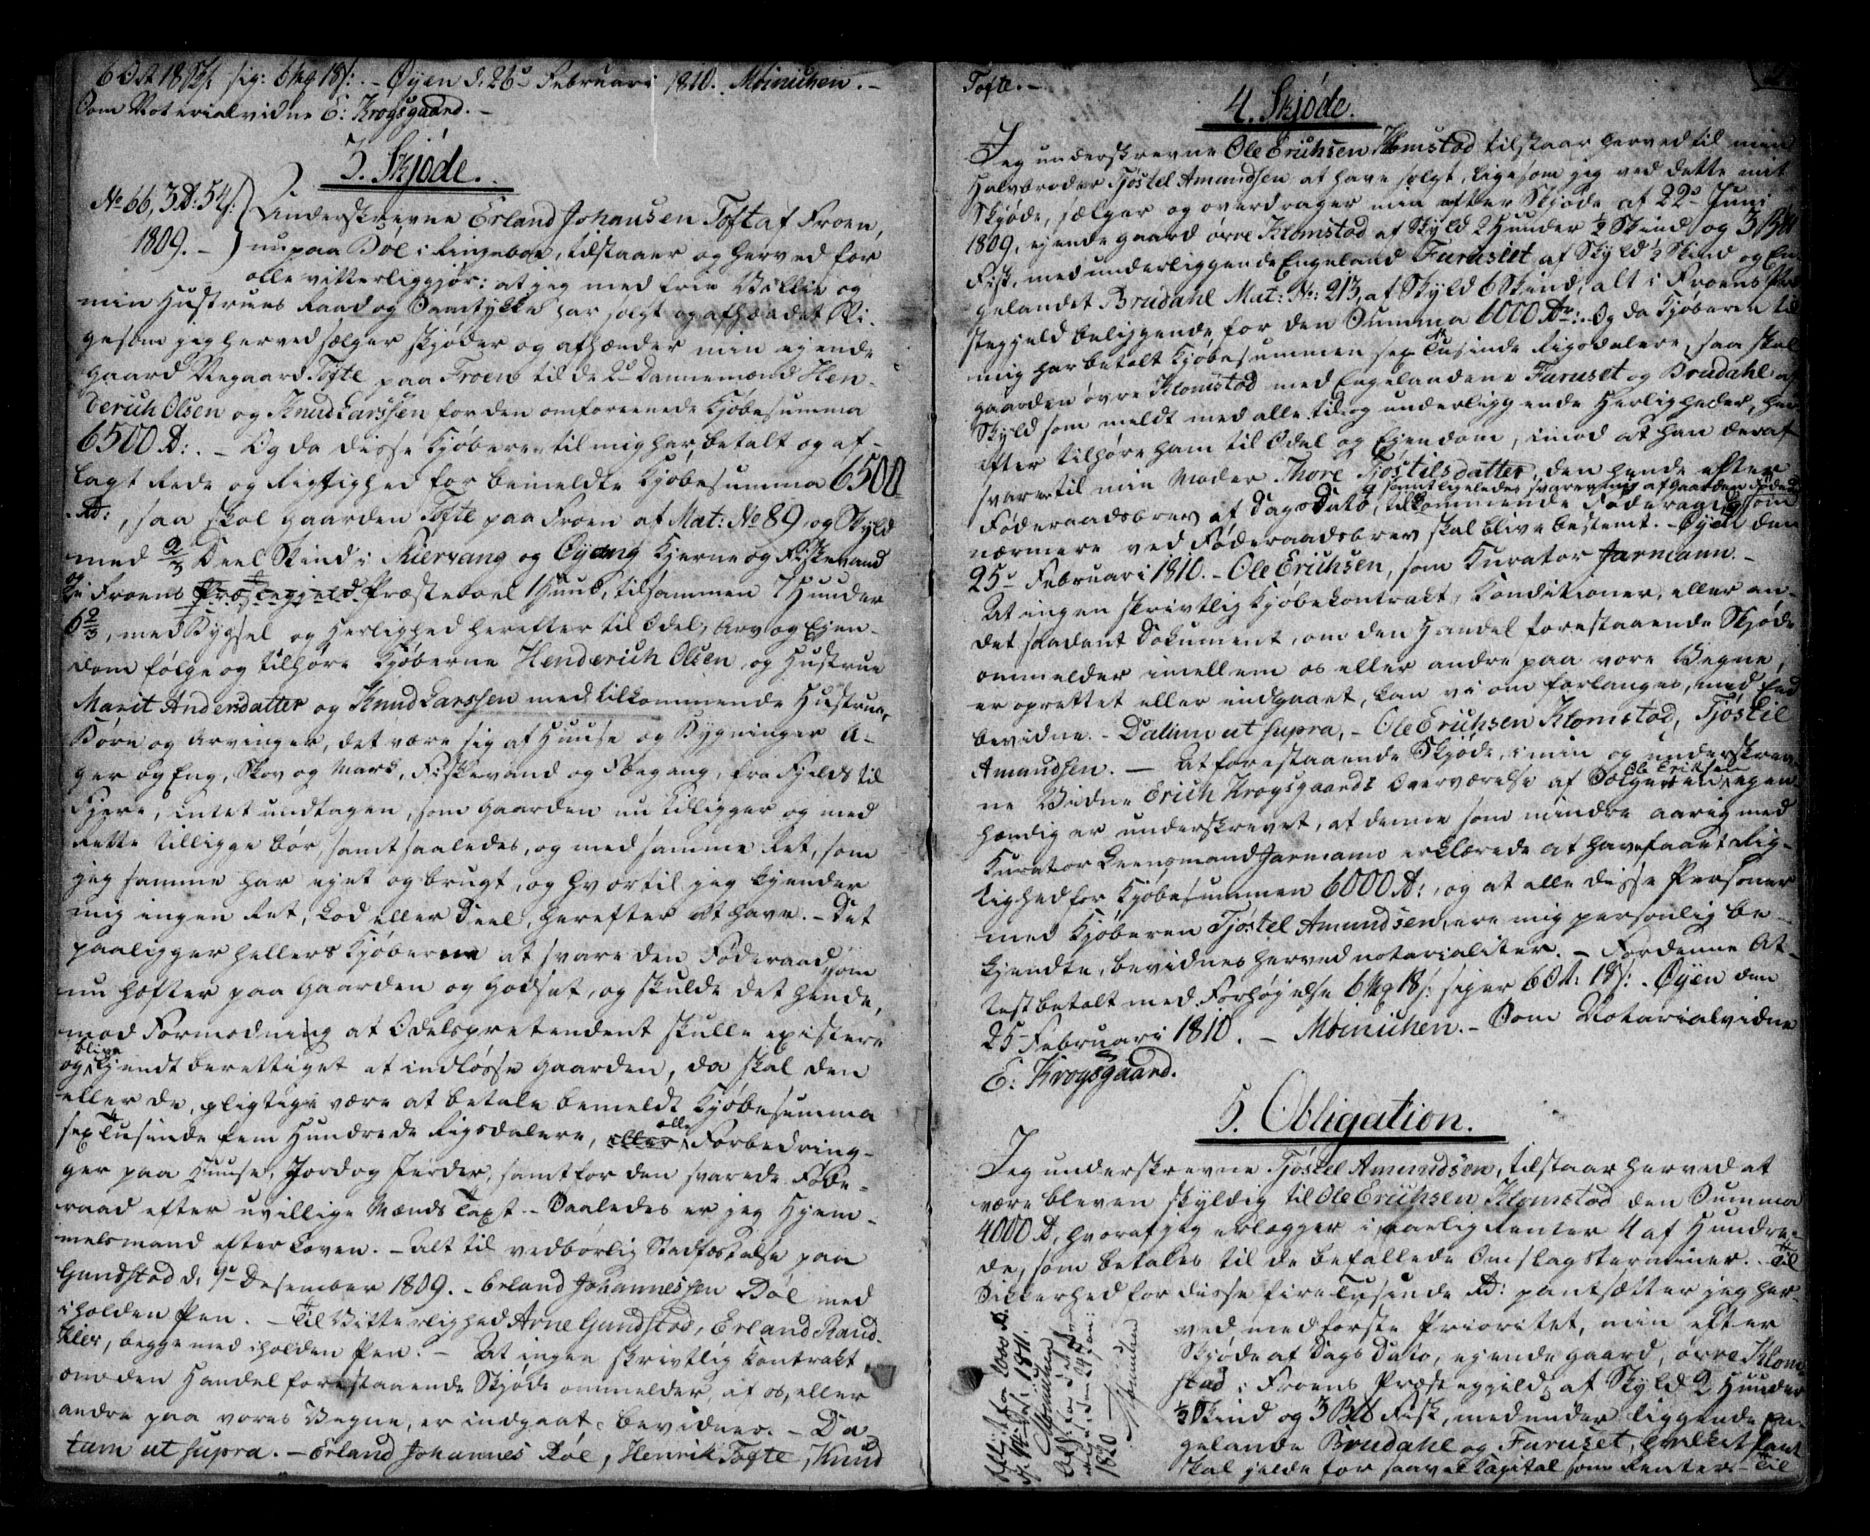 6 Ort 18 s: sig: 6 mg 18 s: - Øyen d: 26de Februari 1810. Møinichen. -
Som Notarialvidne E: Krogsgaard. -
3. Skjøde.
No 66, 3 Rd: 54 s:
1809. -
Underskrevne Erland Johansen Toft af Froen,
nu paa Bøe i Ringeboe, tilstaaer og herved for
alle vitterliggjør: at jeg med frie Villie og
min Hustrues Raad og Samtykke har solgt og afhændet li-
gesom jeg herved sælger skjøder og afhænder min ejende
gaard Tofte paa Froen til de 2de Dannemænd Hen-
derich Olsen og Knud Larssen for den omforeenede Kjøbesumma
6500 Rd: - Og da disse Kjøbere til mig har betalt og af-
lagt Rede og Rigtighed for bemeldte Kjøbesumma 6500
Rd:, saa skal gaarden Tofte paa Froen af Mat: No 89 og Skyld
med 2/3 Deel Skind i Skiervang og Øyang Kjerne og Fiskevand
og i Froens Præstegjeld Præsteboel 1 Huud, tilsammen 1 Hunder
6 2/3, med Bygsel og Herlighed herefter til Odel, Arv og Ejen-
dom følge og tilhøre Kjøberne Henderich Olsen og Hustrue
Marit Andersdatter og Knud Larssen med tilkommende Hustrue,
Børn og Arvinger, det være sig af Huuse og Bygninger A-
ger og Eng, Skov og Mark, Fiskevand og Fægang, fra Fjeld til
Fjere, intet undtagen, som gaarden nu tilligger og med
Rette tilligge bør, samt saaledes, og med samme Ret, som
jeg samme har ejet og brugt, og hvortil jeg kjender
mig ingen Ret, Lod eller Deel, herefter at have. - Det
paaligger hellers Kjøberne at svare den Føderaad som
nu hæfter paa Gaarden og Godset, og skulde det hænde,
mod Formodning at Odelspretendent skulle existere
og blive kjendt berettiget at indløse gaarden, da skal den
eller de, pligtige være at betale bemeldte Kjøbesumma
sex Tusinde fem Hundrede Rigsdalere, eller alle Forbedrin-
ger paa Huuse, Jord og Jorder, samt for den svarede Føde-
raad efter uvillige Mænds Taxt. - Saaledes er jeg Hjem-
melsmand efter Loven. - Alt til vedbørlig Stadfæstelse paa
Gundstad d: 9de Desember 1809. - Erland Johannessen Bøe med
iholden Pen. - Til Vitterlighed Arne Gundstad, Erland Raud-
lier, begge med iholden Pen. - At ingen skrivtlig Kontrakt
om den Handel forestaaende Skjøde ommelder, af os, eller
andre paa vores Vegne, er indgaat, bevidner. - Da-
tum ut supra. - Erland Johannes Bøe, Henrik Tofte, Knud
Tofte. -
4. Skjøde.
Jeg underskrevne Ole Erichsen Klomstad tilstaar herved til min
Halvbroder Tjøstel Amundsen at have solgt, ligesom jeg ved dette mit
Skjøde, sælger og overdrager min efter Skjøde af 22de Juni
1809, ejende gaard øvre Klomstad af Skyld 2 Hunder 1/2 Skind og 3 Bpd
Fisk, med underliggende Engeland Furuset af Skyld 1/2 Skind og En-
gelandet Brudahl Mat: No: 213, af Skyld 6 Skind, alt i Froens Præ-
stegjeld beliggende, for den Summa 6000 Rdr: - Og da Kjøberen til
mig har betalt Kjøbesummen sex Tusinde Rigsdalere, saa skal
gaarden øvre Klomstad med Engelandene Furuset og Brudahl af
Skyld som meldt med alle til- og underliggende Herligheder, her-
efter tilhøre ham til Odel og Ejendom, imod at han deraf
svarer til min Moder Thore Tjøstilsdatter, den hende efter
Føderaadsbrev af Dags Dato, tilkommende Føderaad, samt ligeledes svarer mig af Gaarden Føderaad som
nærmere ved Føderaadsbrev skal blive bestemt. - Øyen den
25de Februari 1810. - Ole Erichsen, som Kurator Jarmann. -
At ingen skrivtlig Kjøbekontrakt, Konditioner, eller an-
det saadant Dokument, om den Handel forestaaende Skjøde
ommelder imellem os eller andre paa vore Vegne,
er oprettet eller indgaaet, kan vi om forlanges, med Eed
bevidne. - Datum ut supra. - Ole Erichsen Klomstad, Tjøstil
Amundsen. - At forestaaende Skjøde, i min og underskrev-
ne Vidne Erich Krogsgaards Overværelse af Sælgeren Ole Eriksen egen-
hændig er underskrevet, at denne som mindre aarig med
Kurator Leensmand Jarmann erklærede at have faaet Rig-
tighed for Kjøbesummen 6000 Rd:, og at alle disse Personer
med Kjøberen Tjøstel Amundsen, ere mig personlig be-
kjendte, bevidnes herved notarialiter. - For denne At-
test betalt med Forhøjelse 6 mg 18 s: siger 6 Ort: 18 s: - Øyen den
25 Februari 1810. - Møinichen. - Som Notarialvidne
E: Krogsgaard.
5. Obligation.
Jeg underskrevne Tjøstel Amundsen, tilstaar herved at
være bleven skyldig til Ole Erichsen Klomstad den Summa
4000 Rd, hvoraf jeg erlægger i aarlig Renter 4 af Hundre-
de, som betales til de befallede Omslagsterminer. - Til
Sikkerhed for disse fire Tusinde Rd: pantsætter jeg her-
ved, med første Prioritet, min efter
Skjøde af Dags Dato, ejende gaard, øvre Klom-
stad i Froens Præstegjeld, af Skyld 2 Hunder
1/2 Skind og 3 Bpd Fisk, med underliggende En-
gelande Brudahl og Furuset, hvilket Pant
skal gjelde for saavel Kapital som Renter. - Til
Afl: for 1000 Rd.
1811.
Møinichen
1820